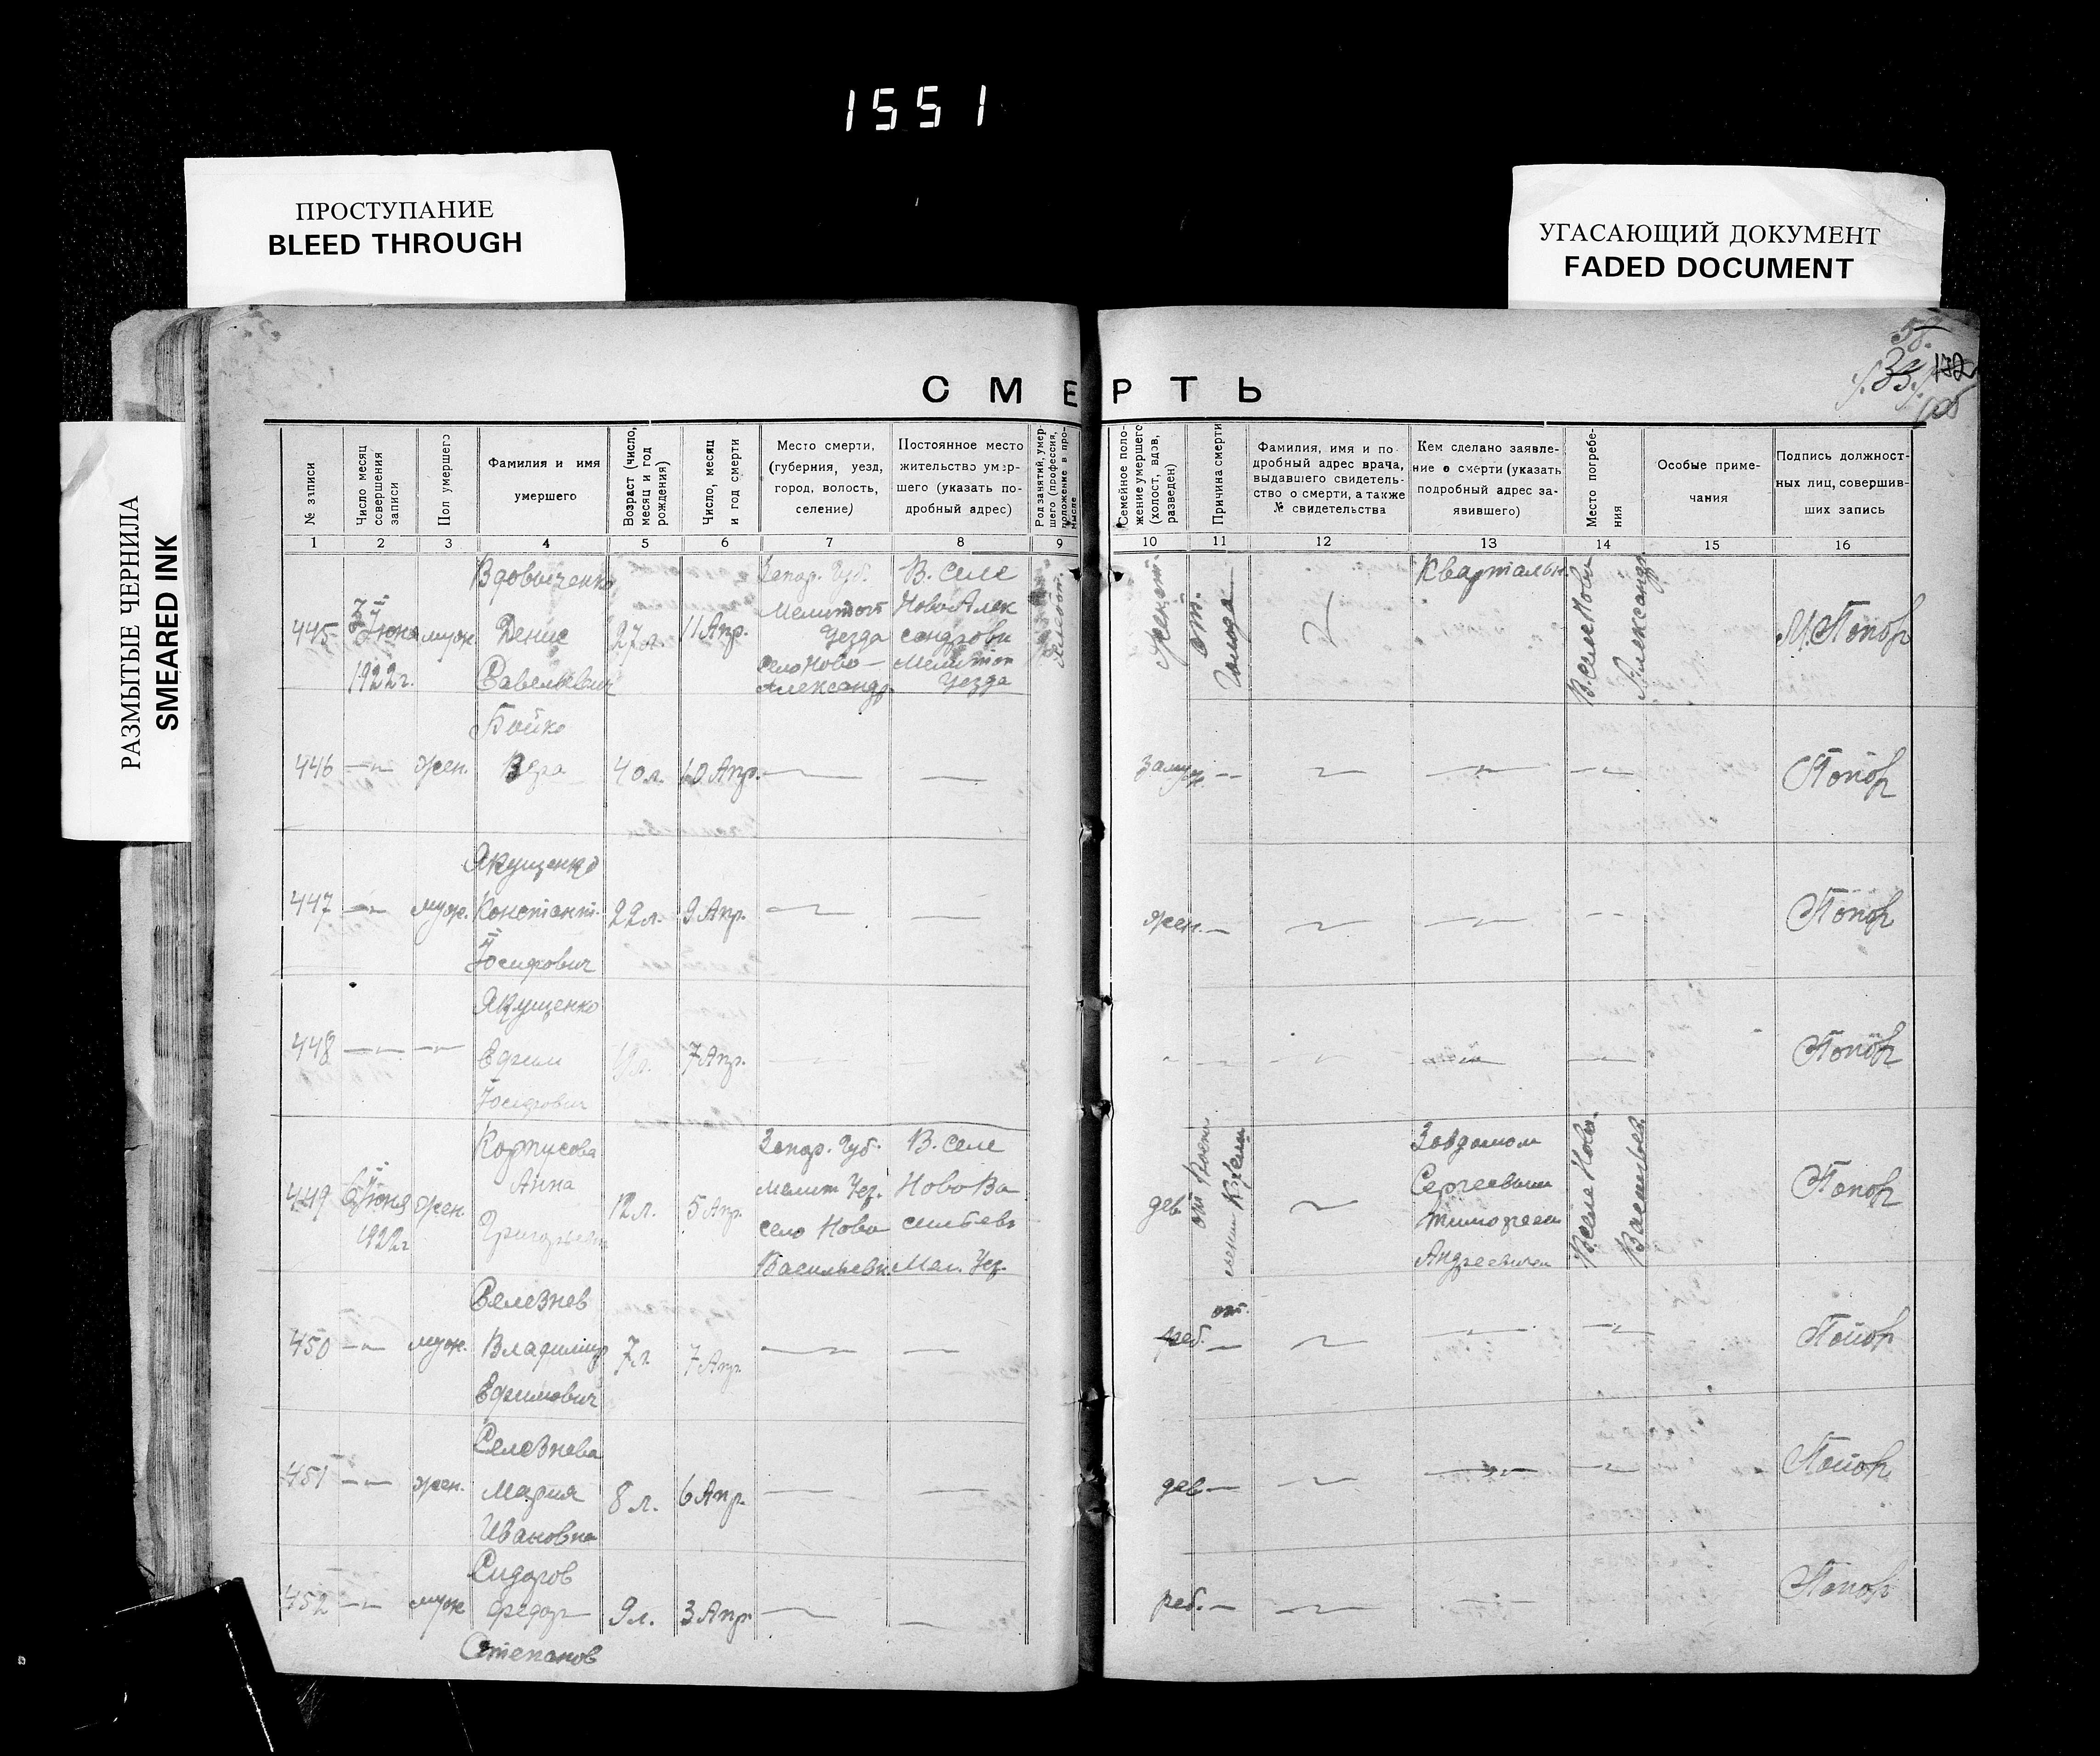 1551
ПРОСТУПАНИЕ
BLEED THROUGH
УГАСАЮЩИЙ ДОКУМЕНТ
FADED DOCUMENT
РАЗМЫТЫЕ ЧЕРНИЛА
SMEARED INK
СМЕРТЬ
№ записи
Число месяц
совершения
записи
Пол умершего
Фамилия и имя
умершего
Возраст (число,
месяц и год
рождения)
Число, месяц
и год смерти
Место смерти,
(губерния, уезд,
город, волость,
селение)
Постоянное место
жительство умер-
шего (указать по-
дробный адрес)
Род занятий, умер-
шего (профессия,
положение в про-
мысле
Семейное поло-
жение умершего
(холост, вдов,
разведен)
Причина смерти
Фамилия, имя и по-
дробный адрес врача,
выдавшего свидетель-
ство о смерти, а также
№ свидетельства
Кем сделано заявле-
ние о смерти (указать
подробный адрес за-
явившего)
Место погребе-
ния
Особые приме-
чания
Подпись должност-
ных лиц, совершив-
ших запись
1 2 3 4 5 6 7 8 9 10 11 12 13 14 15 16
445
Июня
1922 г.
муж.
Вдовыченко
Денис
Савельевич
27 л.
11 Апр.
Запор. Губ.
Мелитоп
Уезда
село Ново-
Александр.
В. Селе
Ново Алек
сандровк
Мелитоп
Уезда
от.
голода
Квартальн.
В. селе Ново
Александр
М. Попов
446
жен.
Бойко
Вера
40 л.
10 Апр.
замуж.
Попов
447
муж.
Якущенко
Константт.
Йосифович
22 л.
9 Апр.
жен.
Попов
448
Якущенко
Ефим
Йосифович
19 л.
7 Апр.
Попов
449
6 Июня
1922 г
жен.
Корпусова
Анна
Григорьевн
12 л.
5 Апр.
Запор. Губ.
Мелит Уез.
село Ново
Васильевк.
В. Селе
Ново Ва
сильевк
Мел. Уез.
дев.
Завдомом
Сергеевым
Тимофеем
Андреевичем
В селе Ново
Васильев.
Попов
450
муж.
Селезнев
Владимир
Ефимович
7 л
7 Апр.
реб.
от.
Попов
451
жен.
Селезнева
Мария
Ивановна
8 л.
6 Апр.
дев
Попов
452
муж
Сидоров
Федор
Степанов
9 л.
3 Апр
реб.
Попов